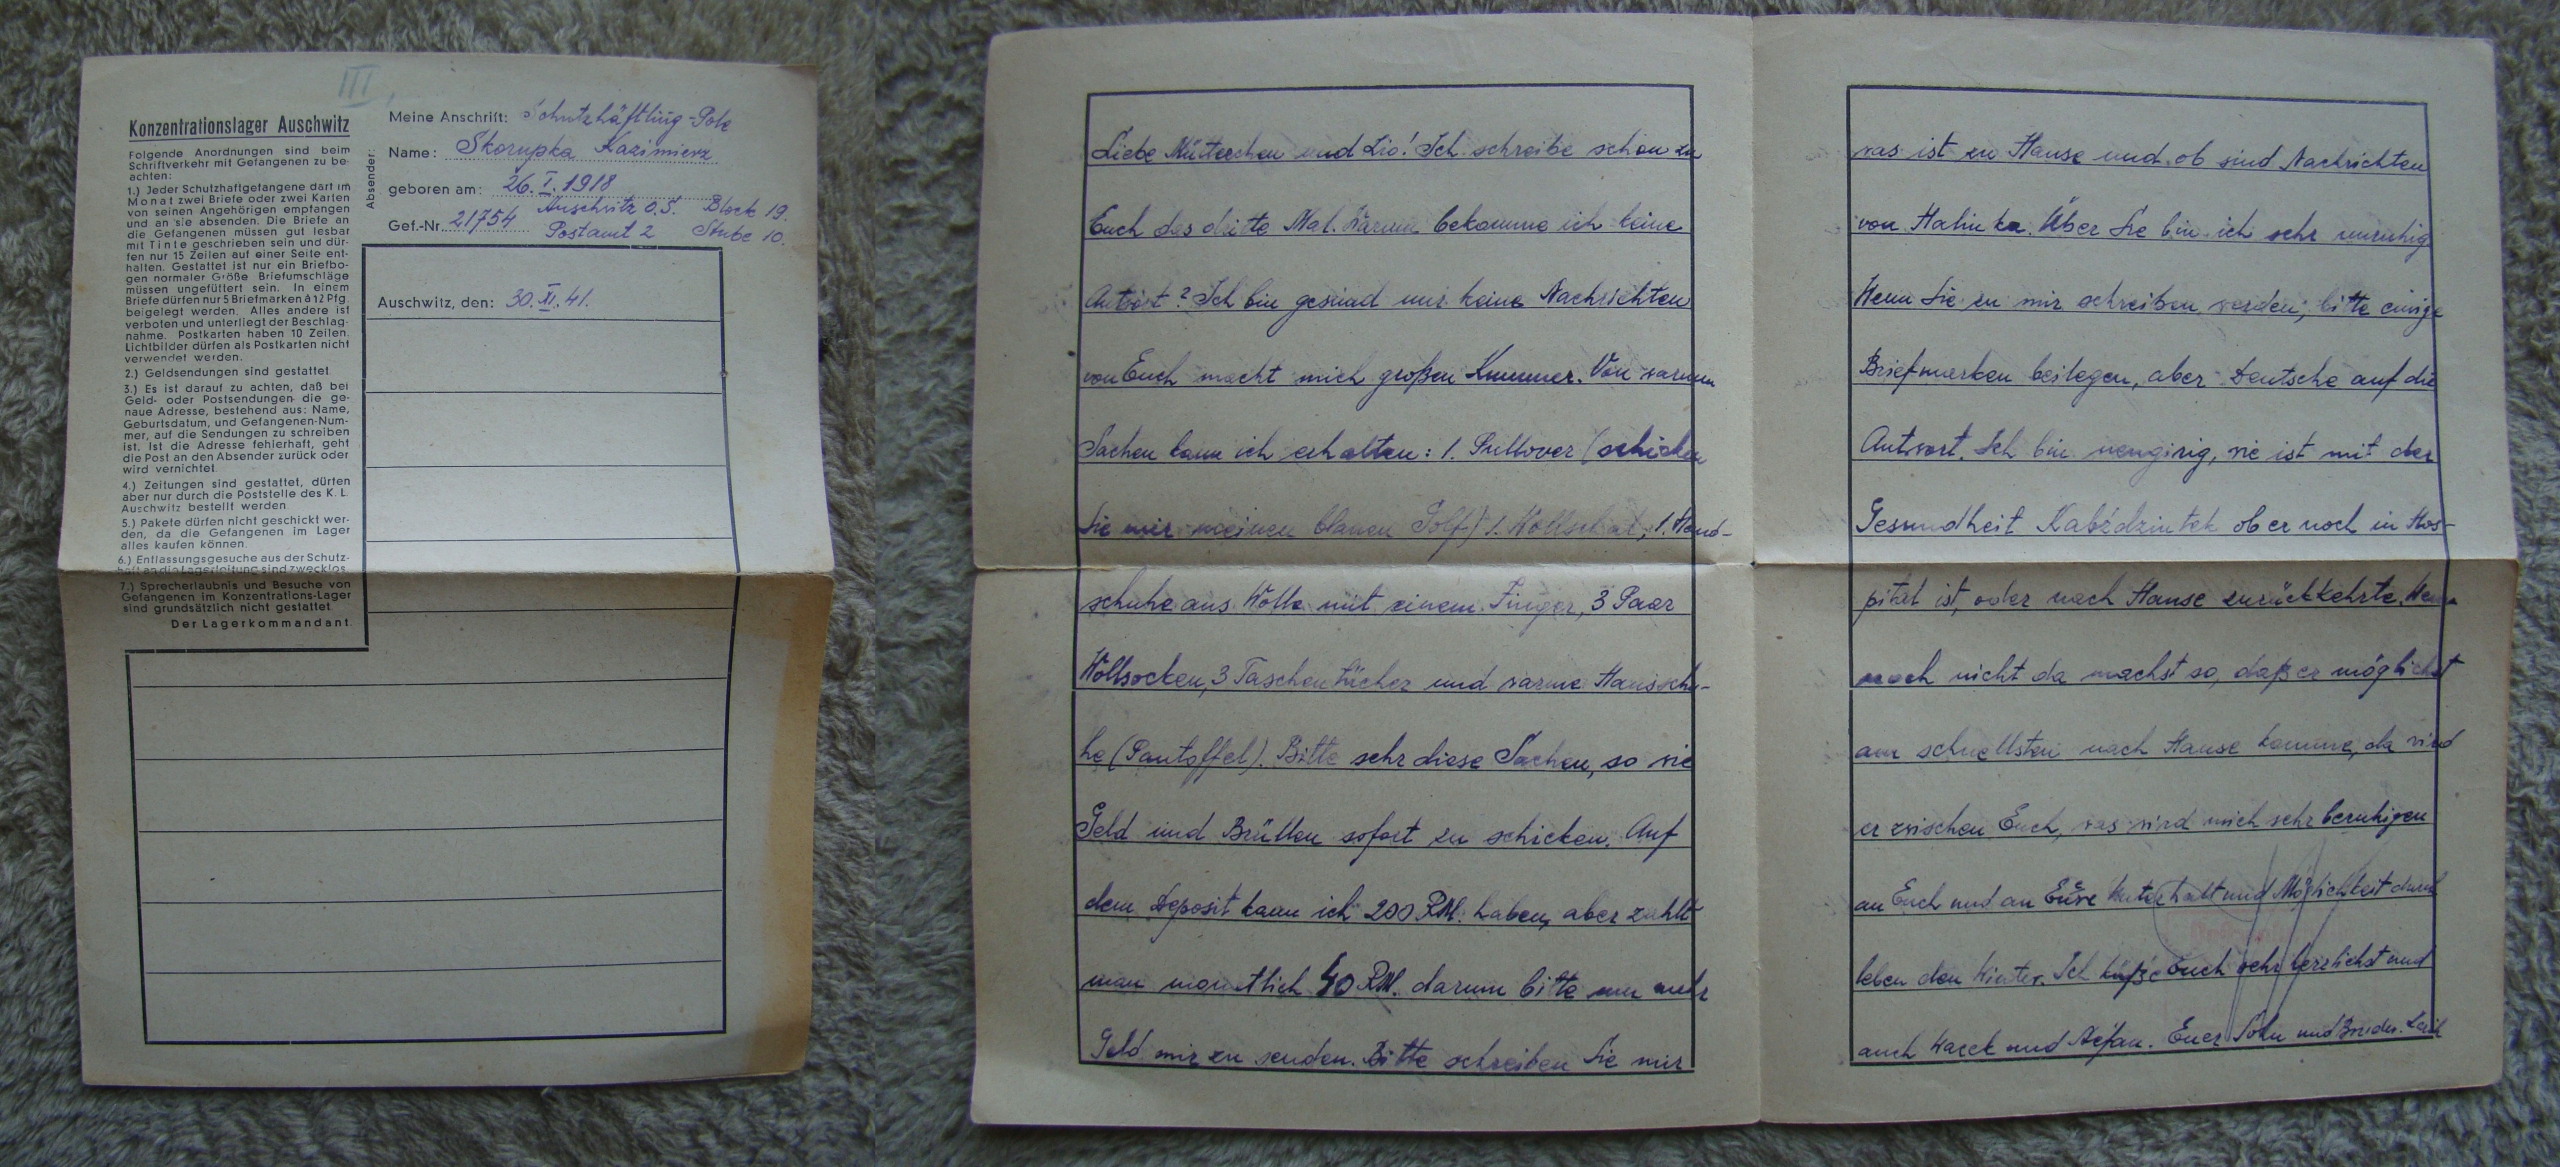 III,
Konzentrationslager Auschwitz
Folgende Anordnungen sind beim
Schriftverkehr mit Gefangenen zu be-
achten:
1.) Jeder Schutzhaftgefangene darf im
Monat zwei Briefe oder zwei Karten
von seinen Angehörigen empfangen
und an sie absenden. Die Briefe an
die Gefangenen müssen gut lesbar
mit Tinte geschrieben sein und dür-
fen nur 15 Zeilen auf einer Seite ent-
halten. Gestattet ist nur ein Briefbo-
gen normaler Größe. Briefumschläge
müssen ungefüttert sein. In einem
Briefe dürfen nur 5 Briefmarken à 12 Pfg.
beigelegt werden. Alles andere ist
verboten und unterliegt der Beschlag-
nahme. Postkarten haben 10 Zeilen.
Lichtbilder dürfen als Postkarten nicht
verwendet werden.
2.) Geldsendungen sind gestattet.
3.) Es ist darauf zu achten, daß bei
Geld- oder Postsendungen die ge-
naue Adresse, bestehend aus: Name,
Geburtsdatum, und Gefangenen-Num-
mer, auf die Sendungen zu schreiben
ist. Ist die Adresse fehlerhaft, geht
die Post an den Absender zurück oder
wird vernichtet.
4.) Zeitungen sind gestattet, dürfen
aber nur durch die Poststelle des K. L.
Auschwitz bestellt werden.
5.) Pakete dürfen nicht geschickt wer-
den, da die Gefangenen im Lager
alles kaufen können.
6.) Entlassungsgesuche aus der Schutz-
haft an die Lagerleitung sind zwecklos.
7.) Sprecherlaubnis und Besuche von
Gefangenen im Konzentrations-Lager
sind grundsätzlich nicht gestattet.
Der Lagerkommandant.
Absender:
Meine Anschrift: Schutzhäftling-Pole
Name: Skorupka Kazimierz
geboren am: 26. I. 1918
Auschwitz O.S. Block 19.
Gef.-Nr. 21754 Postamt 2 Stube 10.
Auschwitz, den: 30. XI. 41.
Liebe Mütterchen und Lio! Ich schreibe schon zu
Euch das dritte Mal. Warum bekomme ich keine
Antwort? Ich bin gesund nur keine Nachrichten
von Euch macht mich großen Kummer. Von warum
Sachen kann ich erhalten: 1. Pullover (schicken
Sie mir meinen blauen Golf) 1. Wollschal, 1. Hand-
schuhe aus Wolle mit einem Finger, 3 Paar
Wollsocken, 3 Taschentücher und warme Hausschu-
he (Pantoffel). Bitte sehr diese Sachen, so wie
Geld und Brüllen sofort zu schicken. Auf
dem Deposit kann ich 200 RM. haben, aber zahlt
man monatlich 40 RM. darum bitte um mehr
Geld mir zu senden. Bitte schreiben Sie mir
was ist zu Hause und ob sind Nachrichten
von Halinka. Über Sie bin ich sehr unruhig
Wenn Sie zu mir schreiben werden, bitte einige
Briefmarken beilegen, aber Deutsche auf die
Antwort. Ich bin neugirig, wie ist mit der
Gesundheit Kabździntek ob er noch in Hos-
pital ist, oder nach Hause zurückkehrte. Wenn
noch nicht da machst so, daß er möglichst
am schnellsten nach Hause komme, da wird
er zwischen Euch, was wird mich sehr beruhigen
an Euch und an Eure Unterhalt und Möglichkeit durch
leben den Winter. Ich küße Euch sehr herzlichst und
auch Wacek und Stefan. Euer Sohn und Bruder.